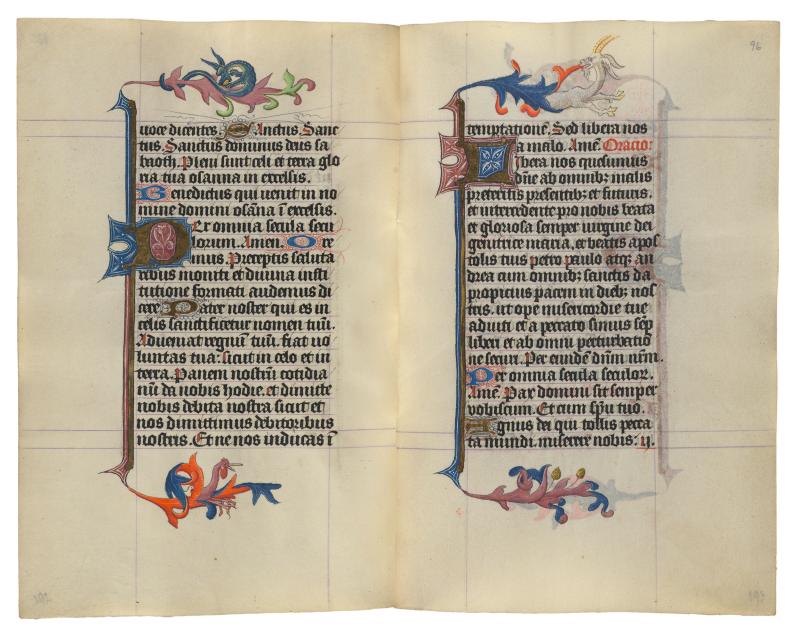 uoce dicentes Sanctus Sanc
tus. Sanctus dominus deus sa
baoth. Pleni sunt celi et terra glo
ria tua osanna in excelsis.
Benedictus qui uenit in no
mine domini osāna ī excelsis.
Per omnia secula secu
lorum. Amen. Ore
mus. Preceptis saluta
ribus moniti et diuina insti
tutione formati audemus di
cere Pater noster qui es in
celis sanctificetur nomen tuū.
Adueniat regnū tuū. fiat uo
luntas tua: sicut in celo et in
terra. Panem nostrū cotidia
nū da nobis hodie. et dimitte
nobis debita nostra sicut et
nos dimittimus debitoribus
nostris. Et ne nos inducas ī
96
temptationē. Sed libera nos
a malo. Amē. Oracio:
libera nos quesumus
dn̄e ab omnibꝫ malis
preteritis presentibꝫ et futuris.
et intercedente pro nobis beata
et gloriosa semper uirgine dei
genitrice maria, et beatis apos
tolis tuis petro paulo atqꝫ an
drea cum omnibꝫ sanctis da
propicius pacem in diebꝫ nos
tris. ut ope misericordie tue
adiuti et a peccato simus sēp
liberi et ab omni perturbatio
ne securi. Per eundē dn̄m nr̄m.
Per omnia secula seculor.
Amē. Pax domini sit semper
vobiscum. Et cum sp̄u tuo.
Agnus dei qui tollis pecca
ta mundi. miserere nobis: ij.